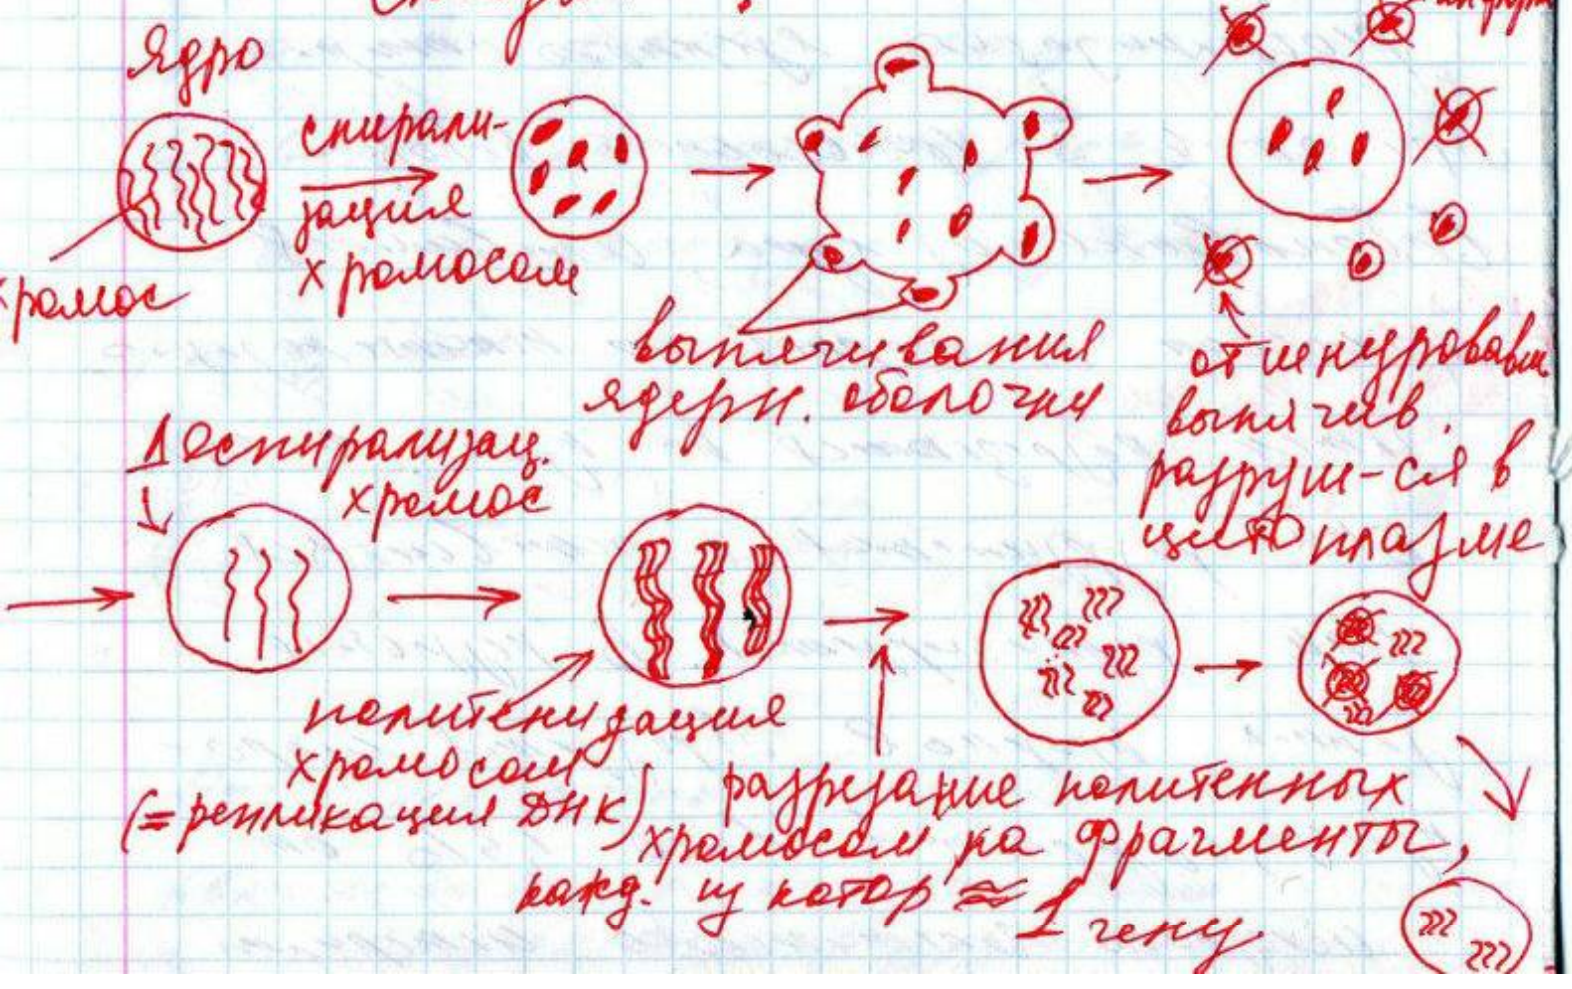 Ядро
спирали-
зация
хромосом
хромос
выпячивания
ядерн. оболочки
отшнуровавш.
выпячив.
разруш-ся в
цитоплазме
Деспирализац.
хромос
политенизация
хромосом
(= репликация ДНК)
разрезание политенных
хромосом на фрагменты,
кажд. из котор ≈ 1 гену